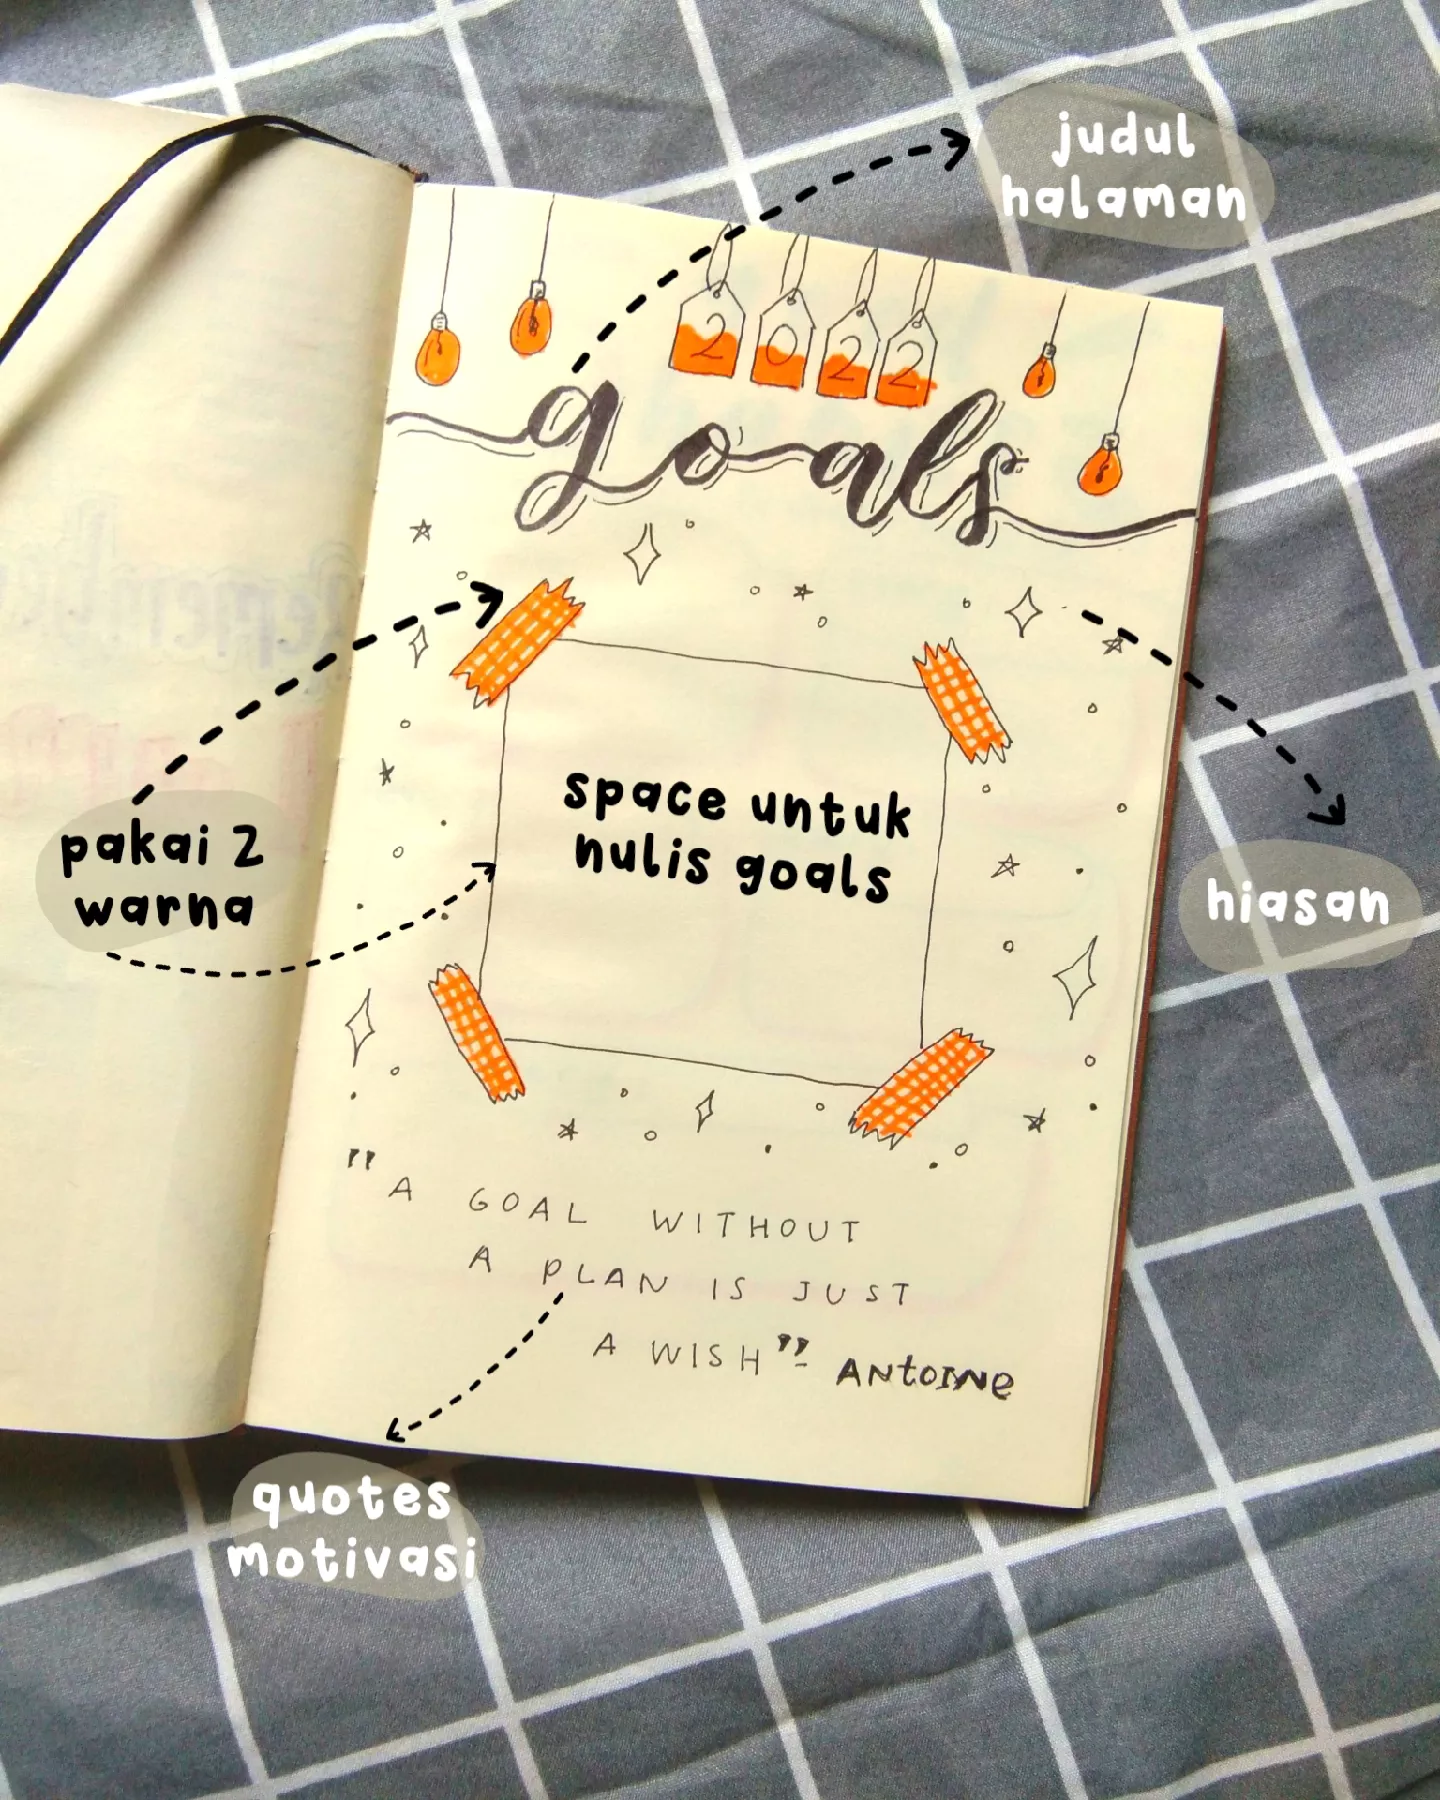 judul
halaman
2 0 2 2
goals
pakai 2
warna
space untuk
nulis goals
hiasan
"A GOAL WITHOUT
A PLAN IS JUST
A WISH" - ANtOINe
quotes
motivasi